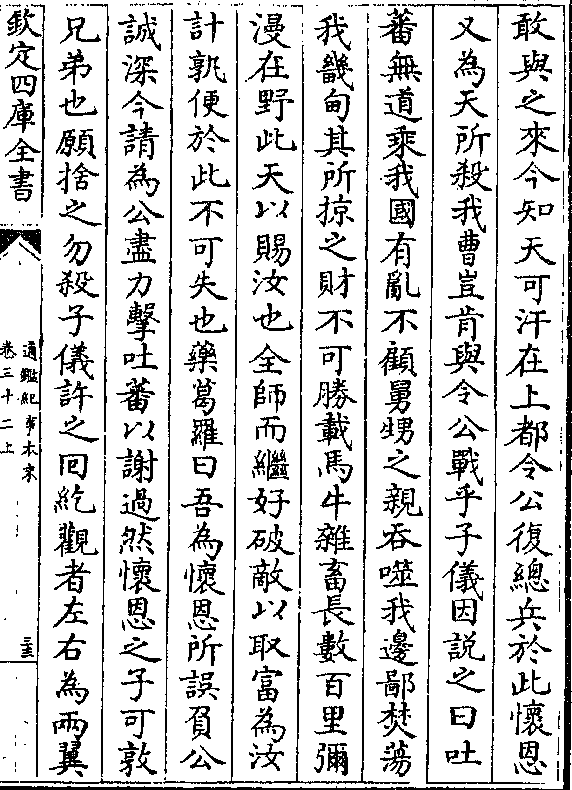 敢與之來今知天可汗在上都令公復總兵於此懷恩
又為天所殺我曹豈肯與令公戰乎子儀因說之曰吐
蕃無道乘我國有亂不顧舅甥之親吞噬我邊鄙焚蕩
我畿甸其所掠之財不可勝載馬牛雜畜長數百里彌
漫在野此天以賜汝也全師而繼好破敵以取富為汝
計孰便於此不可失也藥葛羅曰吾為懷恩所誤負公
誠深今請為公盡力擊吐蕃以謝過然懷恩之子可敦
兄弟也願捨之勿殺子儀許之囘紇觀者左右為兩翼
欽定四庫全書
通鑑紀事本末
卷三十二上